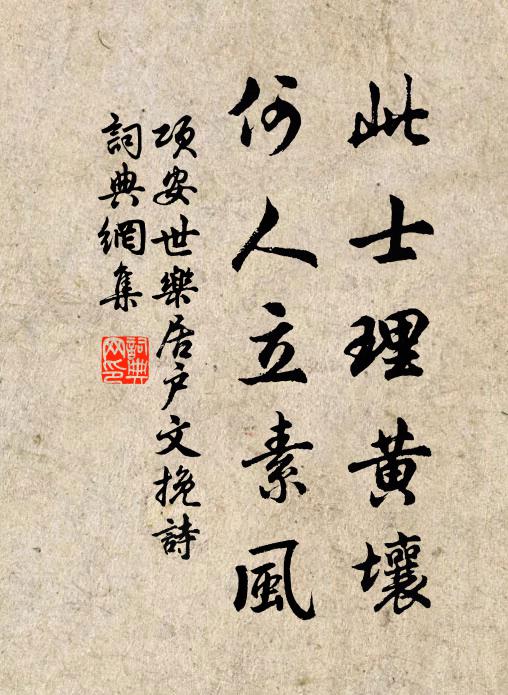 此士理黃壤
何人立素風
項安世樂居戶文挽詩
詞典網集
詞典網印